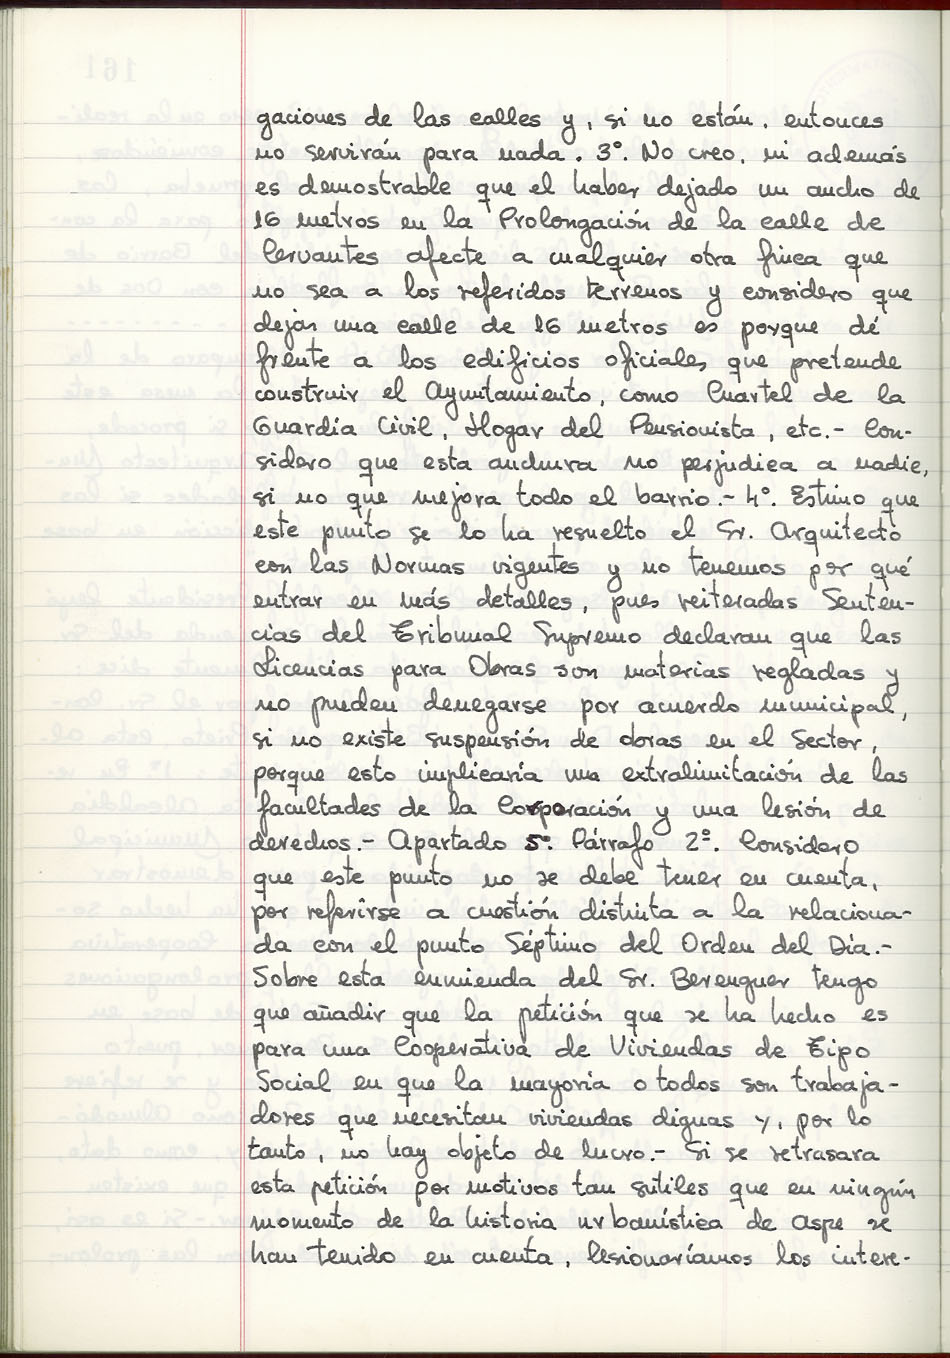 gaciones de las calles y, si no están, entonces
no servirán para nada. 3º. No creo, ni además
es demostrable que el haber dejado un ancho de
16 metros en la Prolongación de la calle de
Cervantes afecte a cualquier otra finca que
no sea a los referidos terrenos y considero que
dejar una calle de 16 metros es porque dé
frente a los edificios oficiales que pretende
construir el Ayuntamiento, como Cuartel de la
Guardia Civil, Hogar del Pensionista, etc.- Con-
sidero que esta anchura no perjudica a nadie,
si no que mejora todo el barrio.- 4º. Estimo que
este punto se lo ha resuelto el Sr. Arquitecto
con las Normas vigentes y no tenemos por qué
entrar en más detalles, pues reiteradas Senten-
cias del Tribunal Supremo declaran que las
Licencias para Obras son materias regladas y
no pueden denegarse por acuerdo municipal,
si no existe suspensión de obras en el Sector,
porque esto implicaría una extralimitación de las
facultades de la Corporación y una lesión de
derechos.- Apartado 5º. Párrafo 2º. Considero
que este punto no se debe tener en cuenta,
por referirse a cuestión distinta a la relaciona-
da con el punto Séptimo del Orden del Día.-
Sobre esta enmienda del Sr. Berenguer tengo
que añadir que la petición que se ha hecho es
para una Cooperativa de Viviendas de Tipo
Social en que la mayoría o todos son trabaja-
dores que necesitan viviendas dignas y, por lo
tanto, no hay objeto de lucro.- Si se retrasara
esta petición por motivos tan sutiles que en ningún
momento de la historia urbanística de Aspe se
han tenido en cuenta, lesionaríamos los intere-